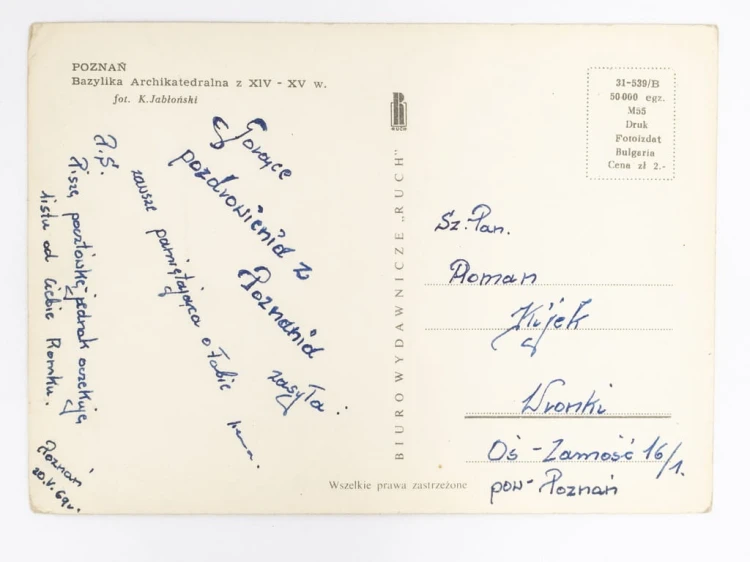 POZNAŃ
Bazylika Archikatedralna z XIV - XV w.
fot. K. Jabłoński
Gorące
pozdrowienia z
Poznania
zasyła:
zawsze pamiętająca o Tobie
P.S.
Piszę pocztówkę-jednak oczekuję
listu od Ciebie Romku.
Poznań
20.V.69r.
BIURO WYDAWNICZE „RUCH"
RUCH
31-539/B
50 000 egz.
M55
Druk
Fotoizdat
Bulgaria
Cena zł 2.-
Sz. Pan.
Roman
Kijek
Wronki
Oś - Zamość 16/1.
pow- Poznań
Wszelkie prawa zastrzeżone